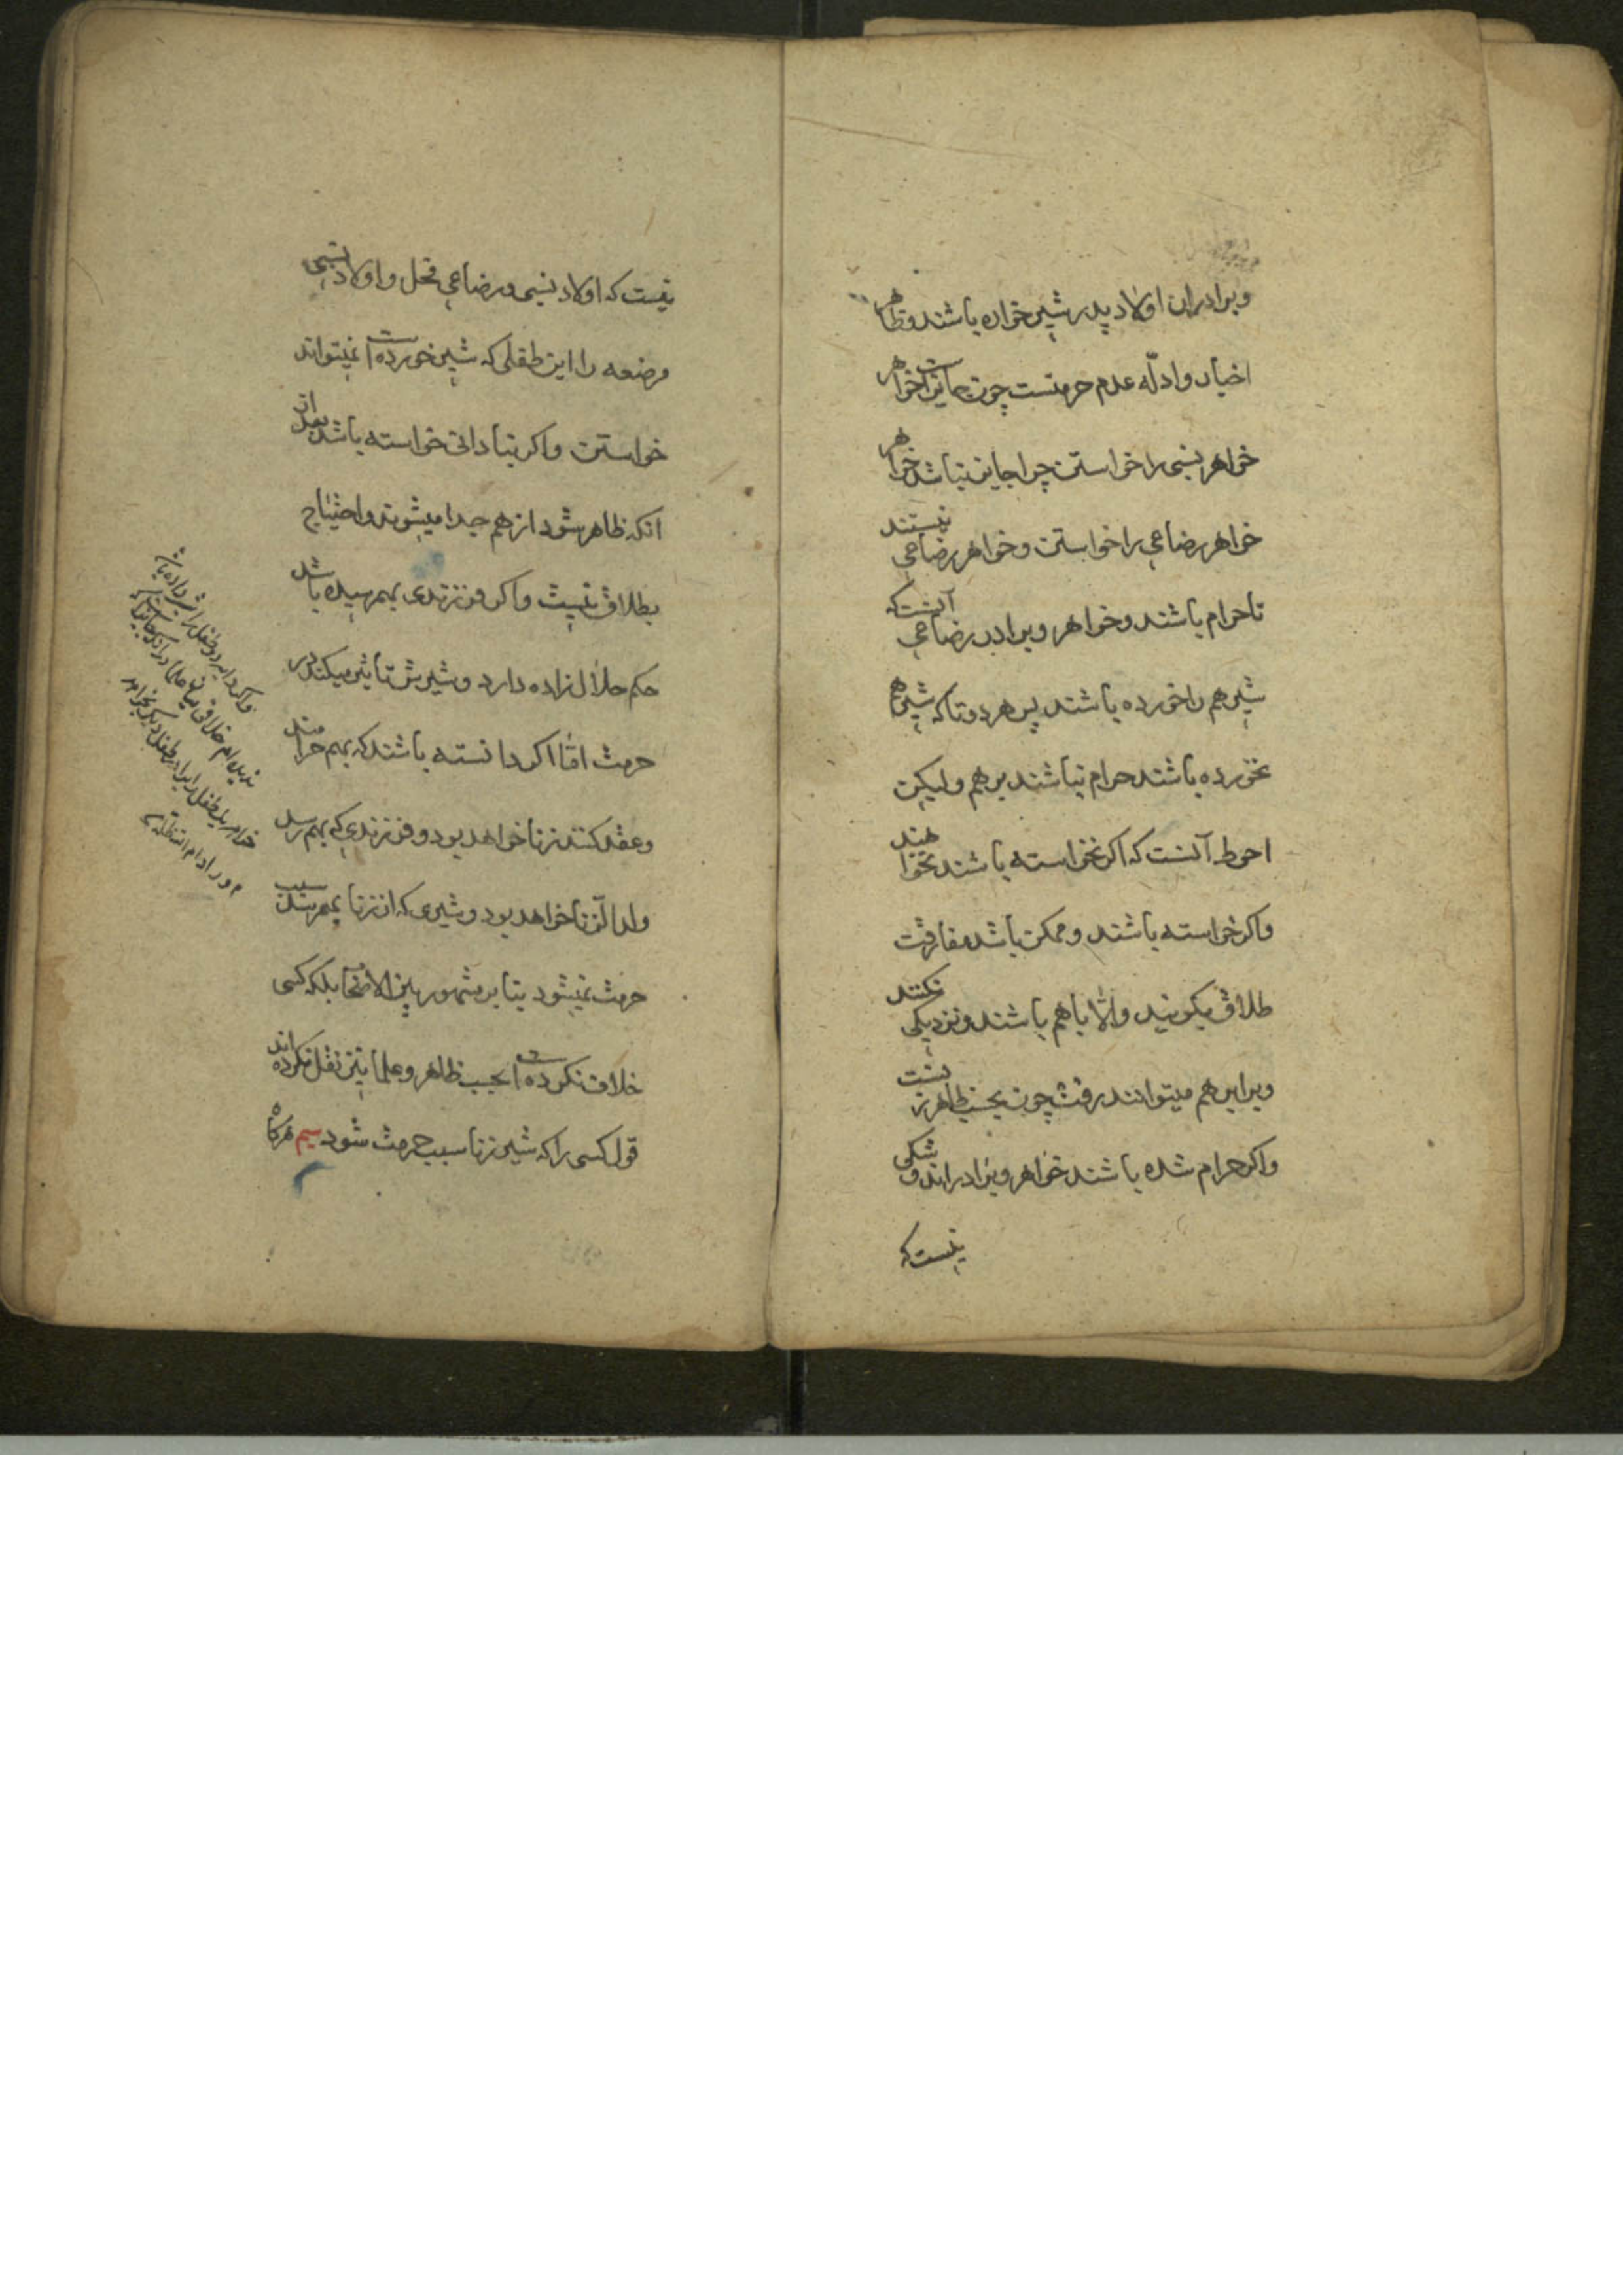 وبرادران اولاد پدر شیر خواره باشند و ظاهر
اخبار و ادلّه عدم حرمتست چون جایز است خواهر
خواهر نسبی را خواستن چرا جایز نباشد خواهر
خواهر رضاعی را خواستن و خواهر رضاعی نیستند
تا حرام باشند و خواهر و برادر رضاعی آنست که
شیر هم را خورده باشند پس هر دو تا که شیر هم
نخورده باشند حرام نباشند بر هم ولیکن
احوط آنست که اکر نخواسته باشند نخواهند
واکر خواسته باشند و ممکن باشد مفارقت
طلاق بکویند والّا با هم باشند و نزدیکی نکنند
وبرابر هم میتوانند رفت چون بحسب ظاهر زنست
واکر حرام شده باشند خواهر و برادراند و شکی
نیست که
نیست که اولاد نسبی و رضاعی فحل و اولاد نسبی
مرضعه را این طفلی که شیر خورده است نمیتواند
خواستن واکر بنادانی خواسته باشد بعد از
انکه ظاهر شود از هم جدا میشوند و احتیاج
بطلاق نیست واکر فرزندی بهم رسیده باشد
حکم حلال زاده دارد و شیرش تأثیر میکند در
حرمت امّا اکر دانسته باشند که بهم حرامند
وعقد کنند زنا خواهد بود و فرزندی که بهم رسد
ولد الزنا خواهد بود و شیری که از زنا بهم رسد سبب
حرمت نمیشود بنا بر مشهور بین الاصحاب بلکه کسی
خلاف نکرده است بحسب ظاهر و علما نیز نقل نکرده اند
قول کسی را که شیر زنا سبب حرمت شود سیم هرکاه
واکر دایه دو طفل را شیر داده باشد
ندیده ام خلافی میان علما در آنکه جایز است که
خواهر یک طفل را برادر طفل دیکر بخواهد